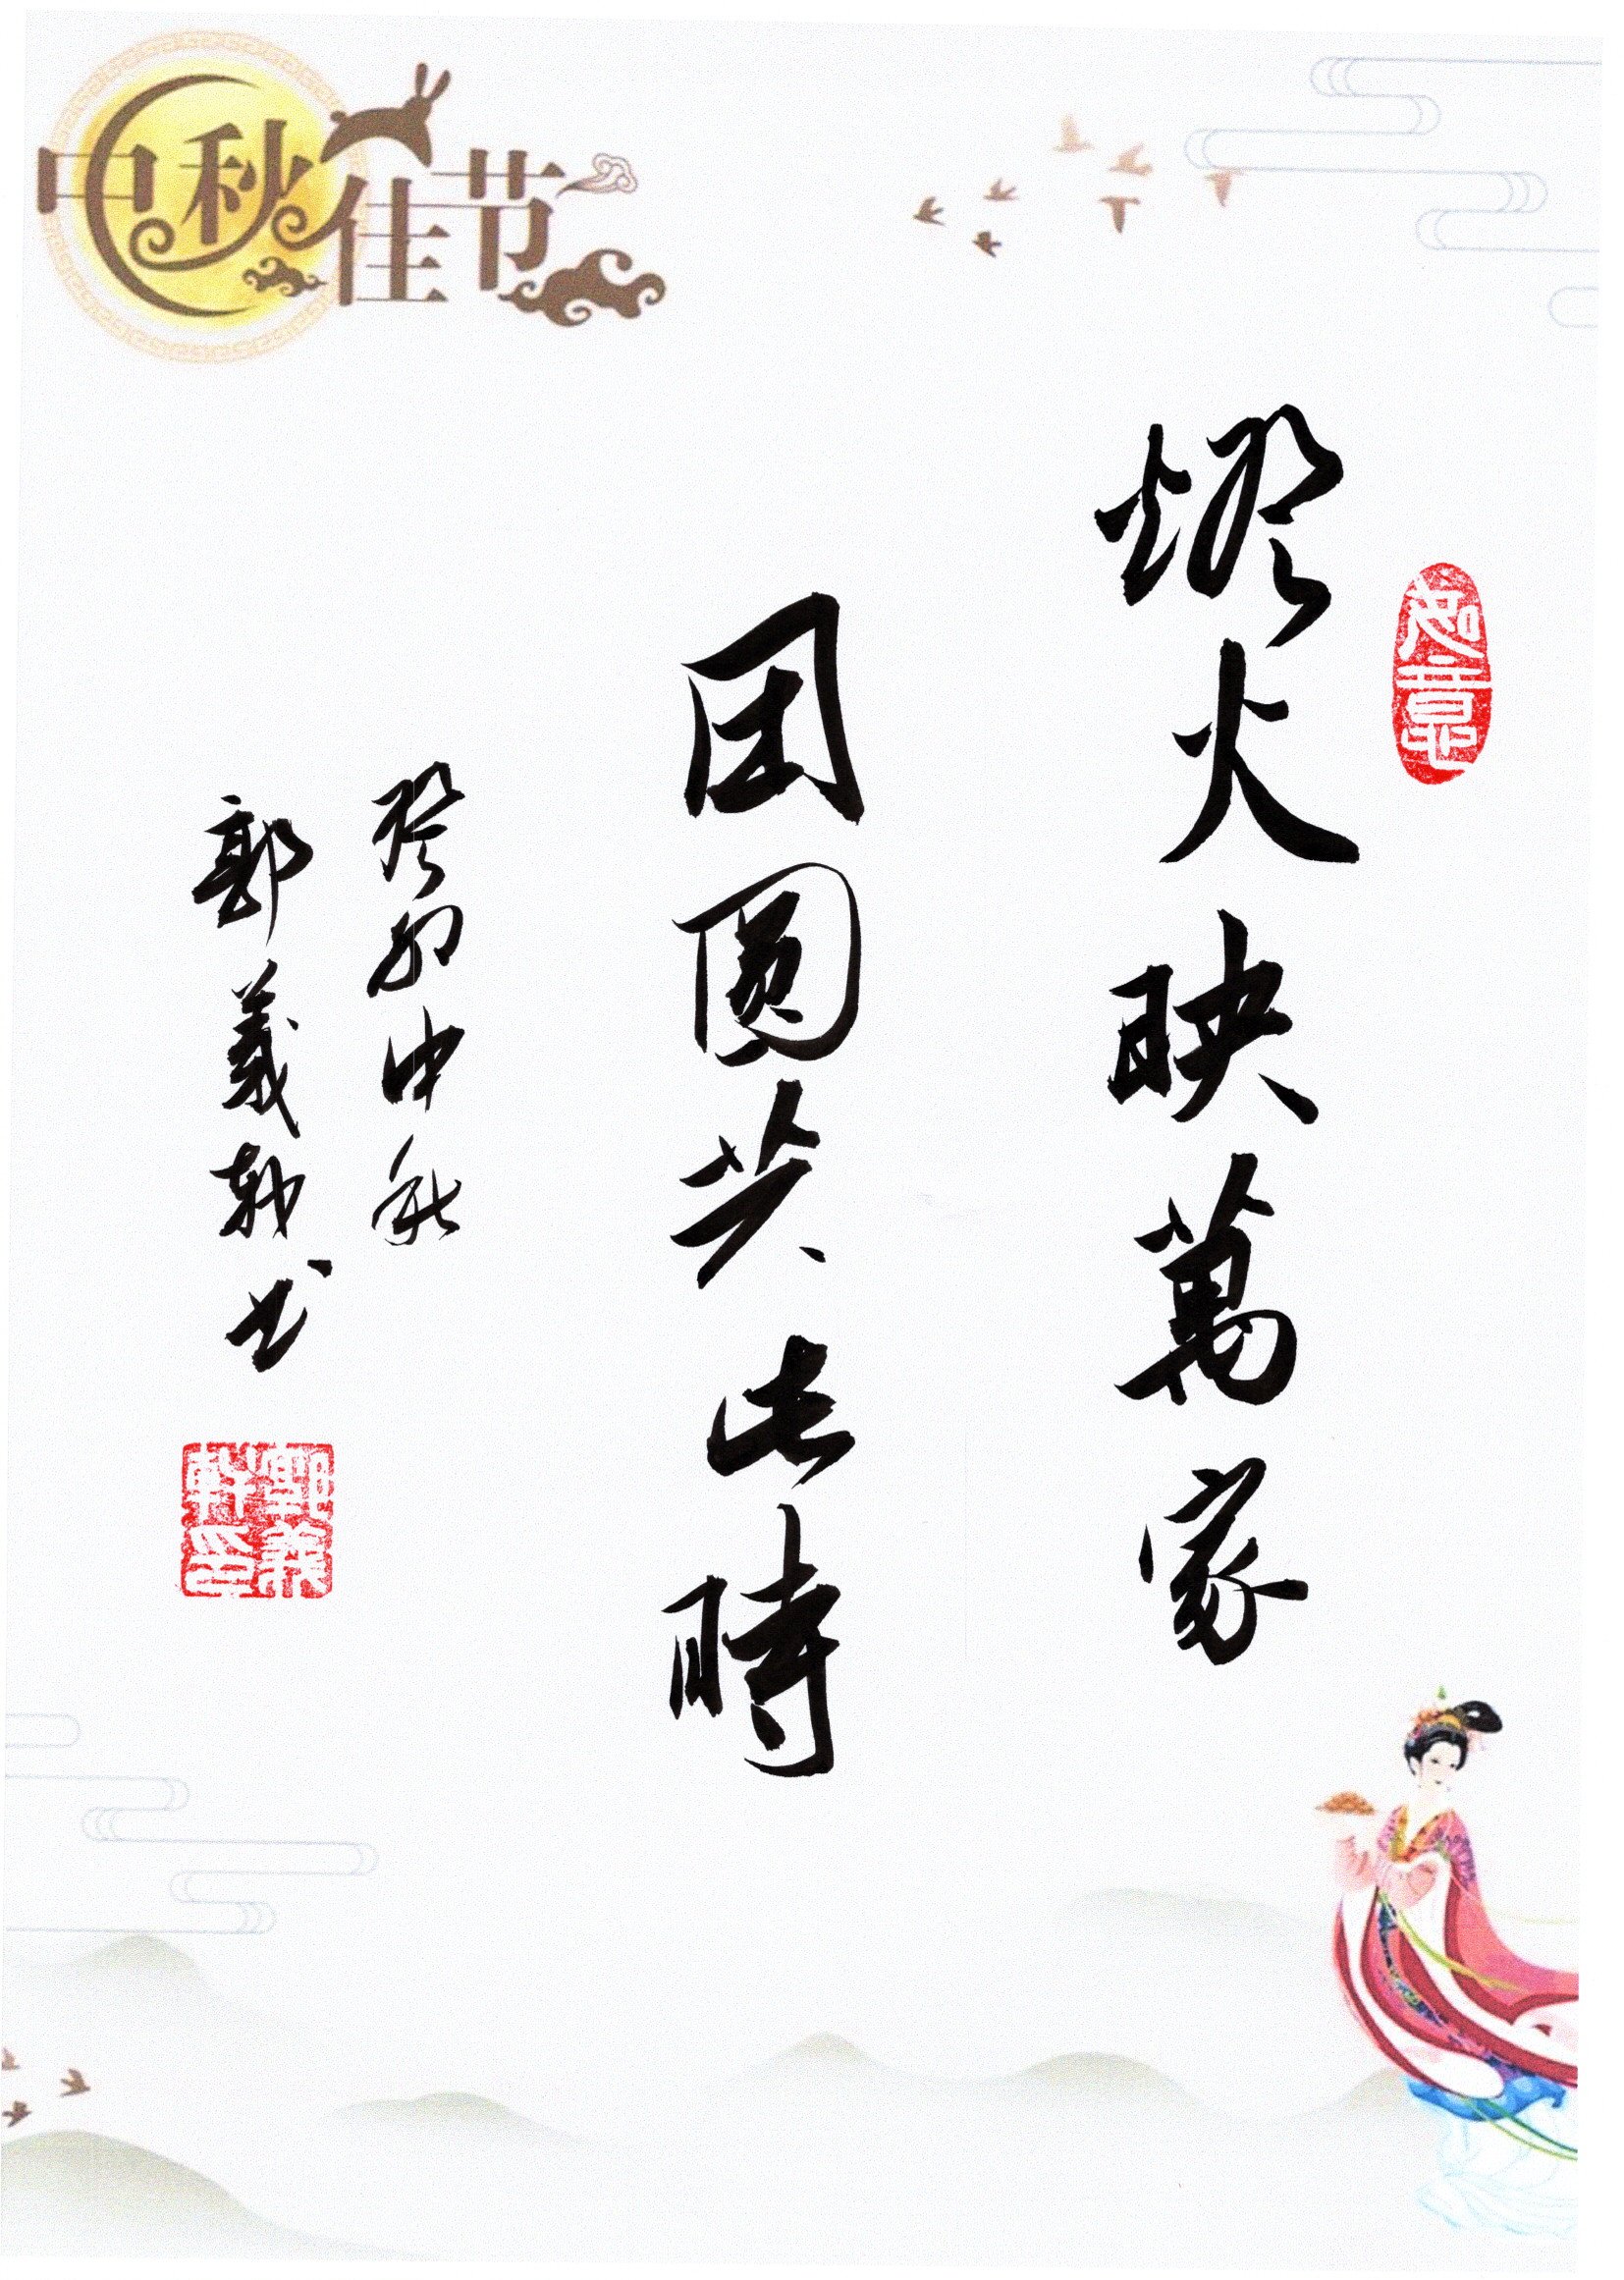 中秋佳节
燈火映萬家
团圓共此時
癸卯中秋
郭義軒书
如意
郭義
軒印